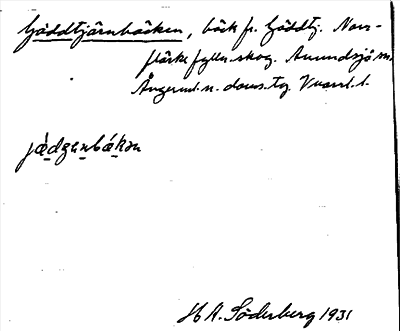 Gäddtjärnbäcken, bäck fr. Gäddtj. Norr-
fylln. skog. Anundsjö sn.
Ångerml. n. doms. tg.
jädzenbäkən
H A. Söderberg 1931